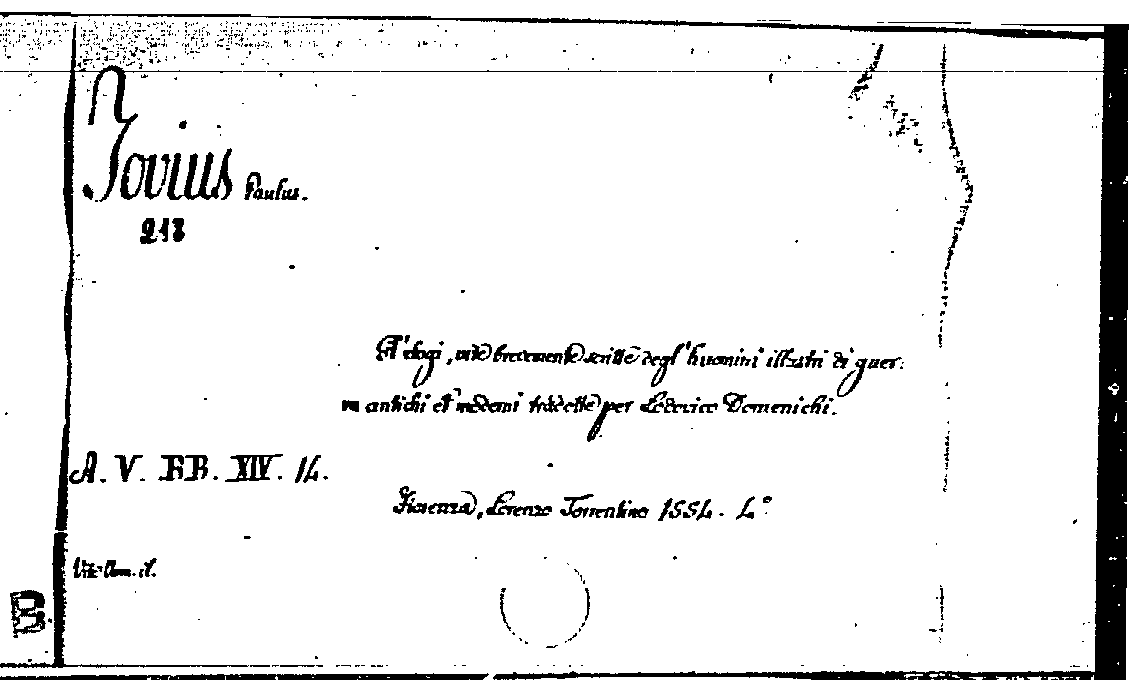 Jovius Paulus.
213
Gl'elogi, vite brevemente scritte degl'huomini illustri di guer:
ra antichi et moderni tradotte per Lodovico Domenichi.
A. V. BB. XIV. 14.
Fiorenza, Lorenzo Torrentino 1554. 4°